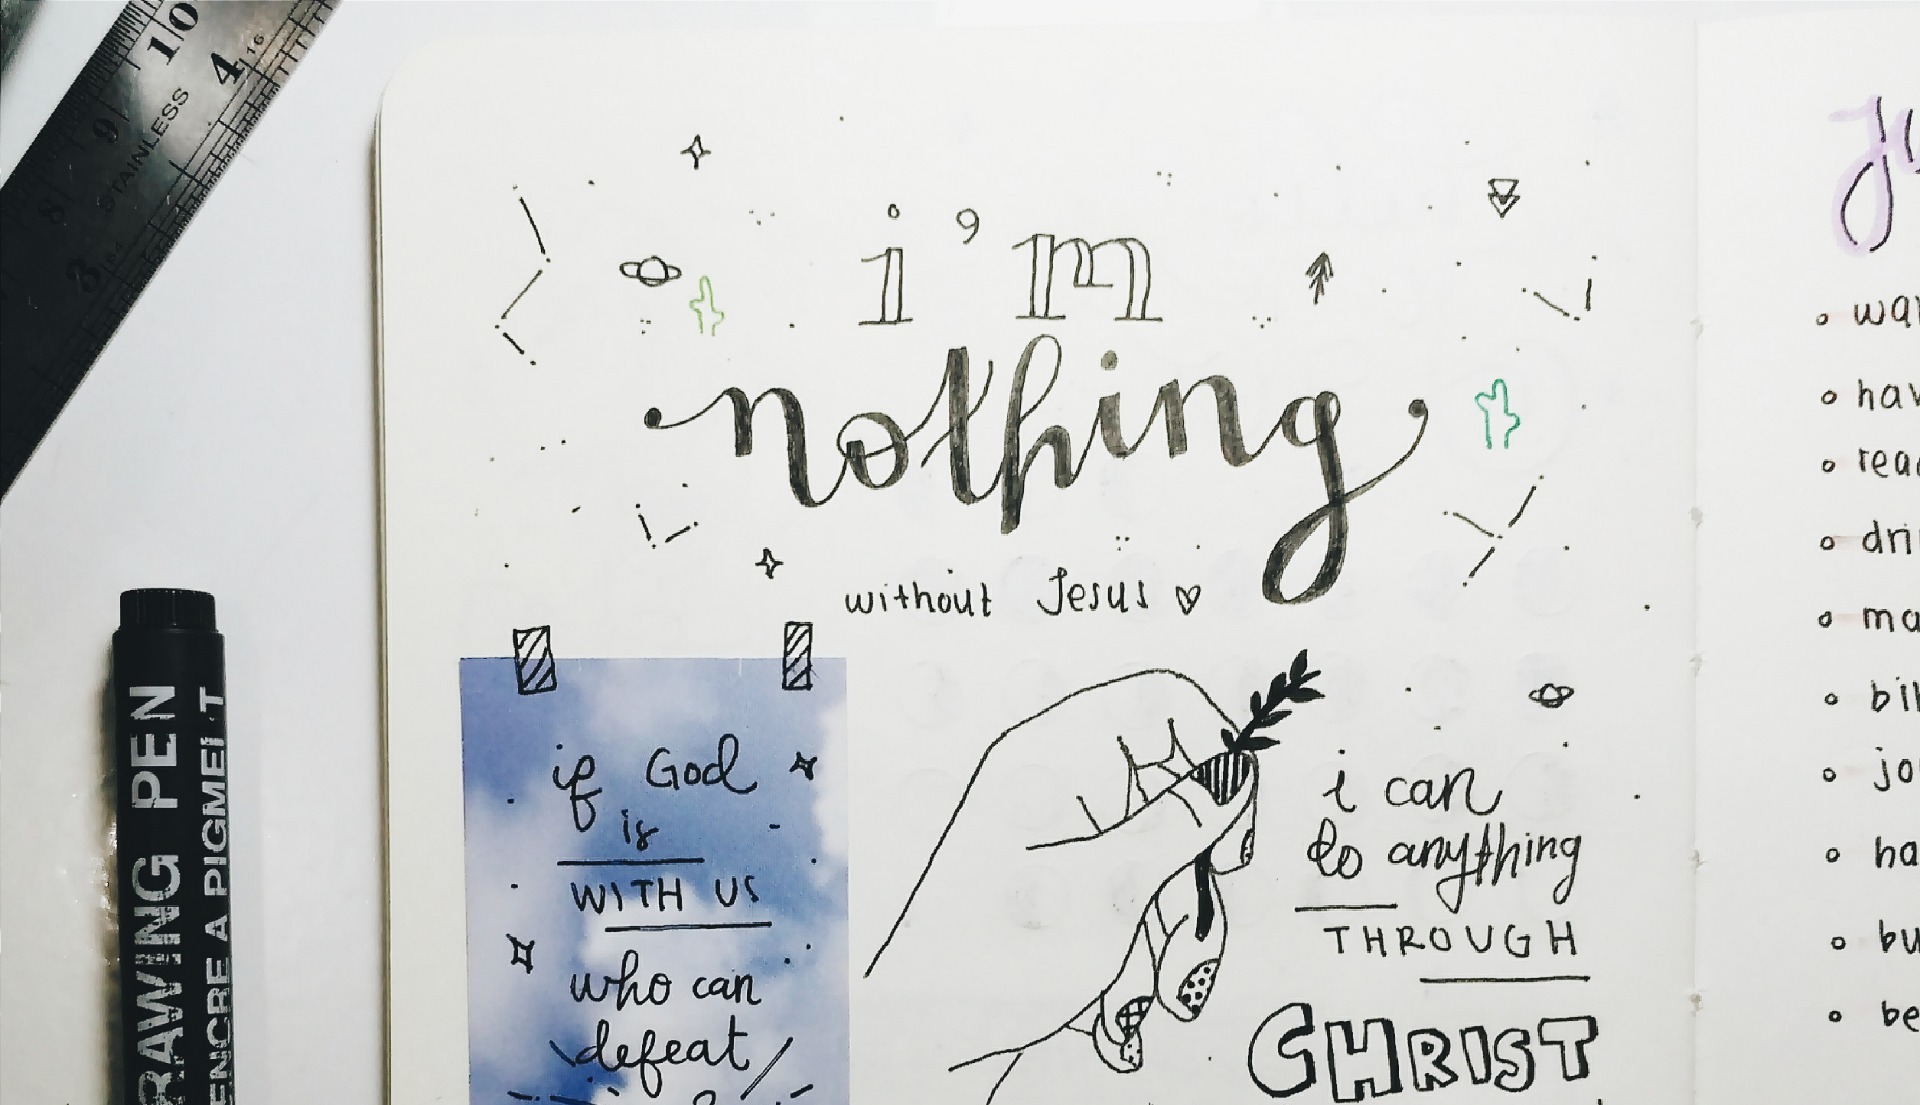 10
4
16
9
STAINLESS
8
3
64
i'm
nothing
without Jesus
if God
is
WITH US
who can
defeat
i can
do anything
THROUGH
CHRIST
DRAWING PEN
ENCRE A PIGMENT